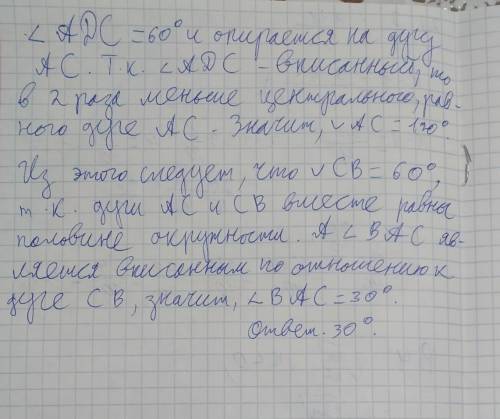 ∠ADC = 60° и опирается на дугу
AC. Т.к. ∠ADC - вписанный, то
в 2 раза меньше центрального, рав-
ного дуге AC. Значит, ◡AC = 120°.
Из этого следует, что ◡CB = 60°,
т.к. дуги AC и CB вместе равны
половине окружности. А ∠BAC яв-
ляется вписанным по отношению к
дуге CB, значит, ∠BAC = 30°.
Ответ. 30°.